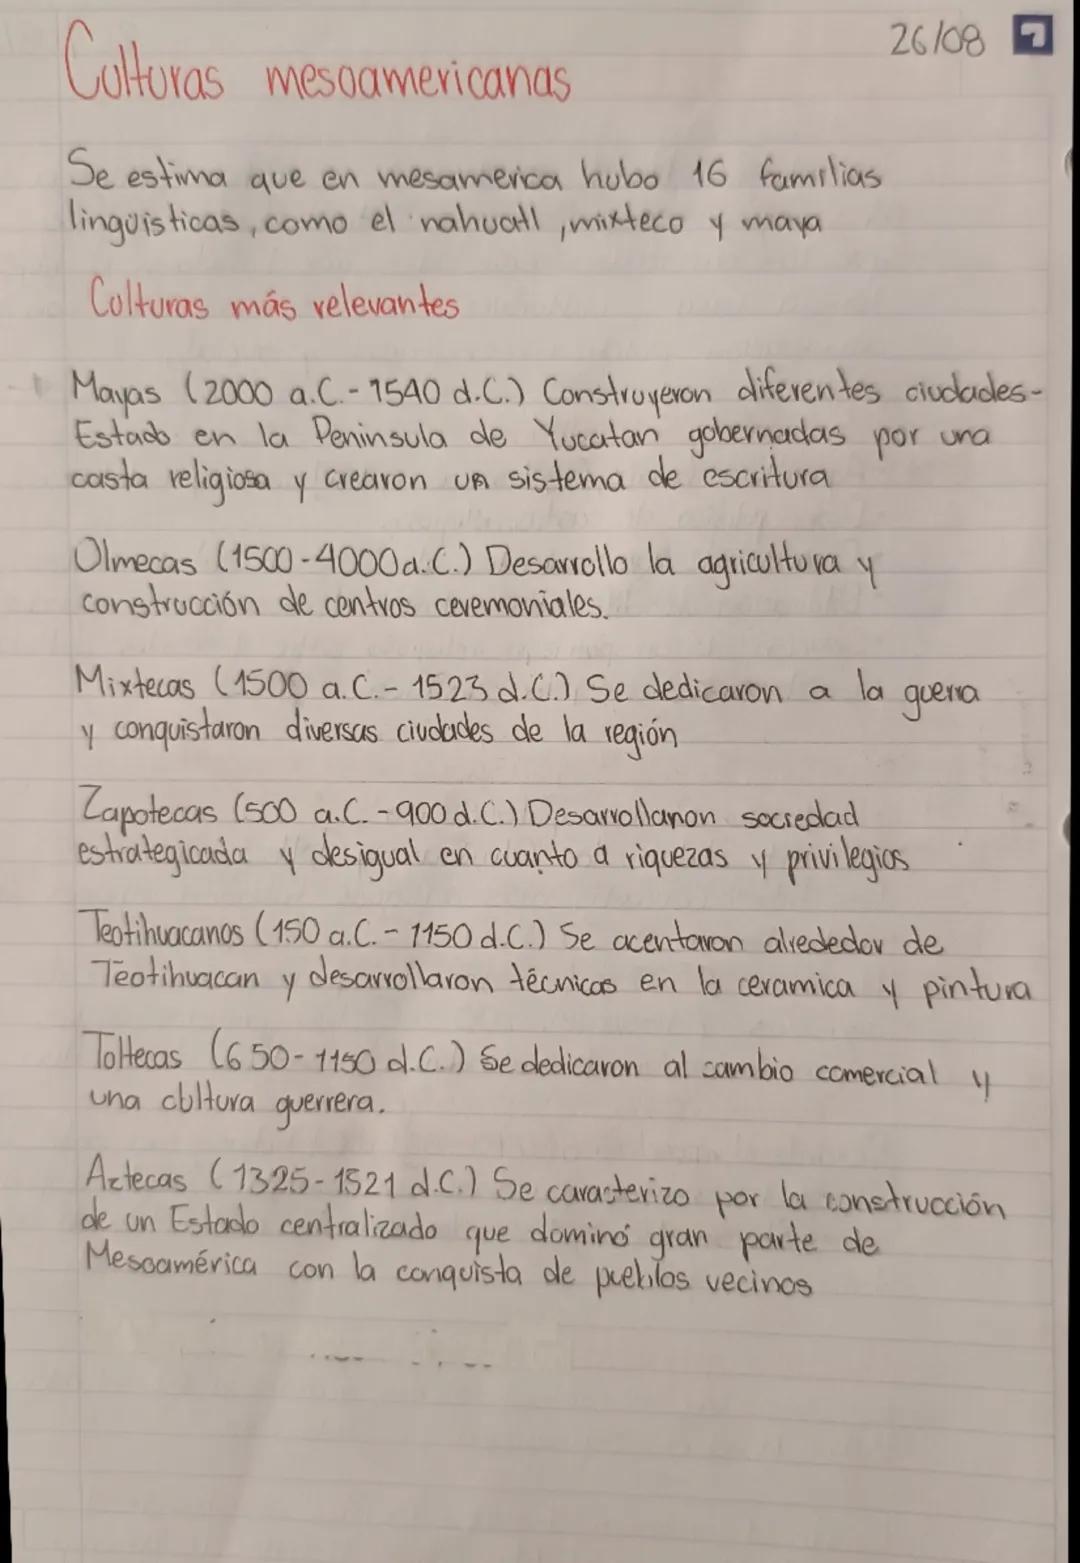 26/08
Culturas mesoamericanas
Se estima que en mesamerica hubo 16 familias
lingüisticas, como el nahuatl, mixteco y maya
Culturas más relevantes
Mayas (2000 a.C. - 1540 d.C.) Construyeron diferentes ciudades-
Estado en la Peninsula de Yucatan gobernadas por una
casta religiosa y crearon un sistema de escritura
Olmecas (1500 - 4000 a.C.) Desarrollo la agricultura y
construcción de centros ceremoniales.
Mixtecas (1500 a.C. - 1523 d.C.) Se dedicaron a la guerra
y conquistaron diversas ciudades de la región
Zapotecas (500 a.C. - 900 d.C.) Desarrollanon sociedad
estrategicada y desigual en cuanto a riquezas y privilegios
Teotihuacanos (150 a.C. - 1150 d.C.) Se acentaron alrededor de
Teotihuacan y desarrollaron técnicas en la ceramica y pintura
Toltecas (650 - 1150 d.C.) Se dedicaron al cambio comercial y
una cultura guerrera.
Aztecas (1325 - 1521 d.C.) Se caracterizo por la construcción
de un Estado centralizado que dominó gran parte de
Mesoamérica con la conquista de pueblos vecinos